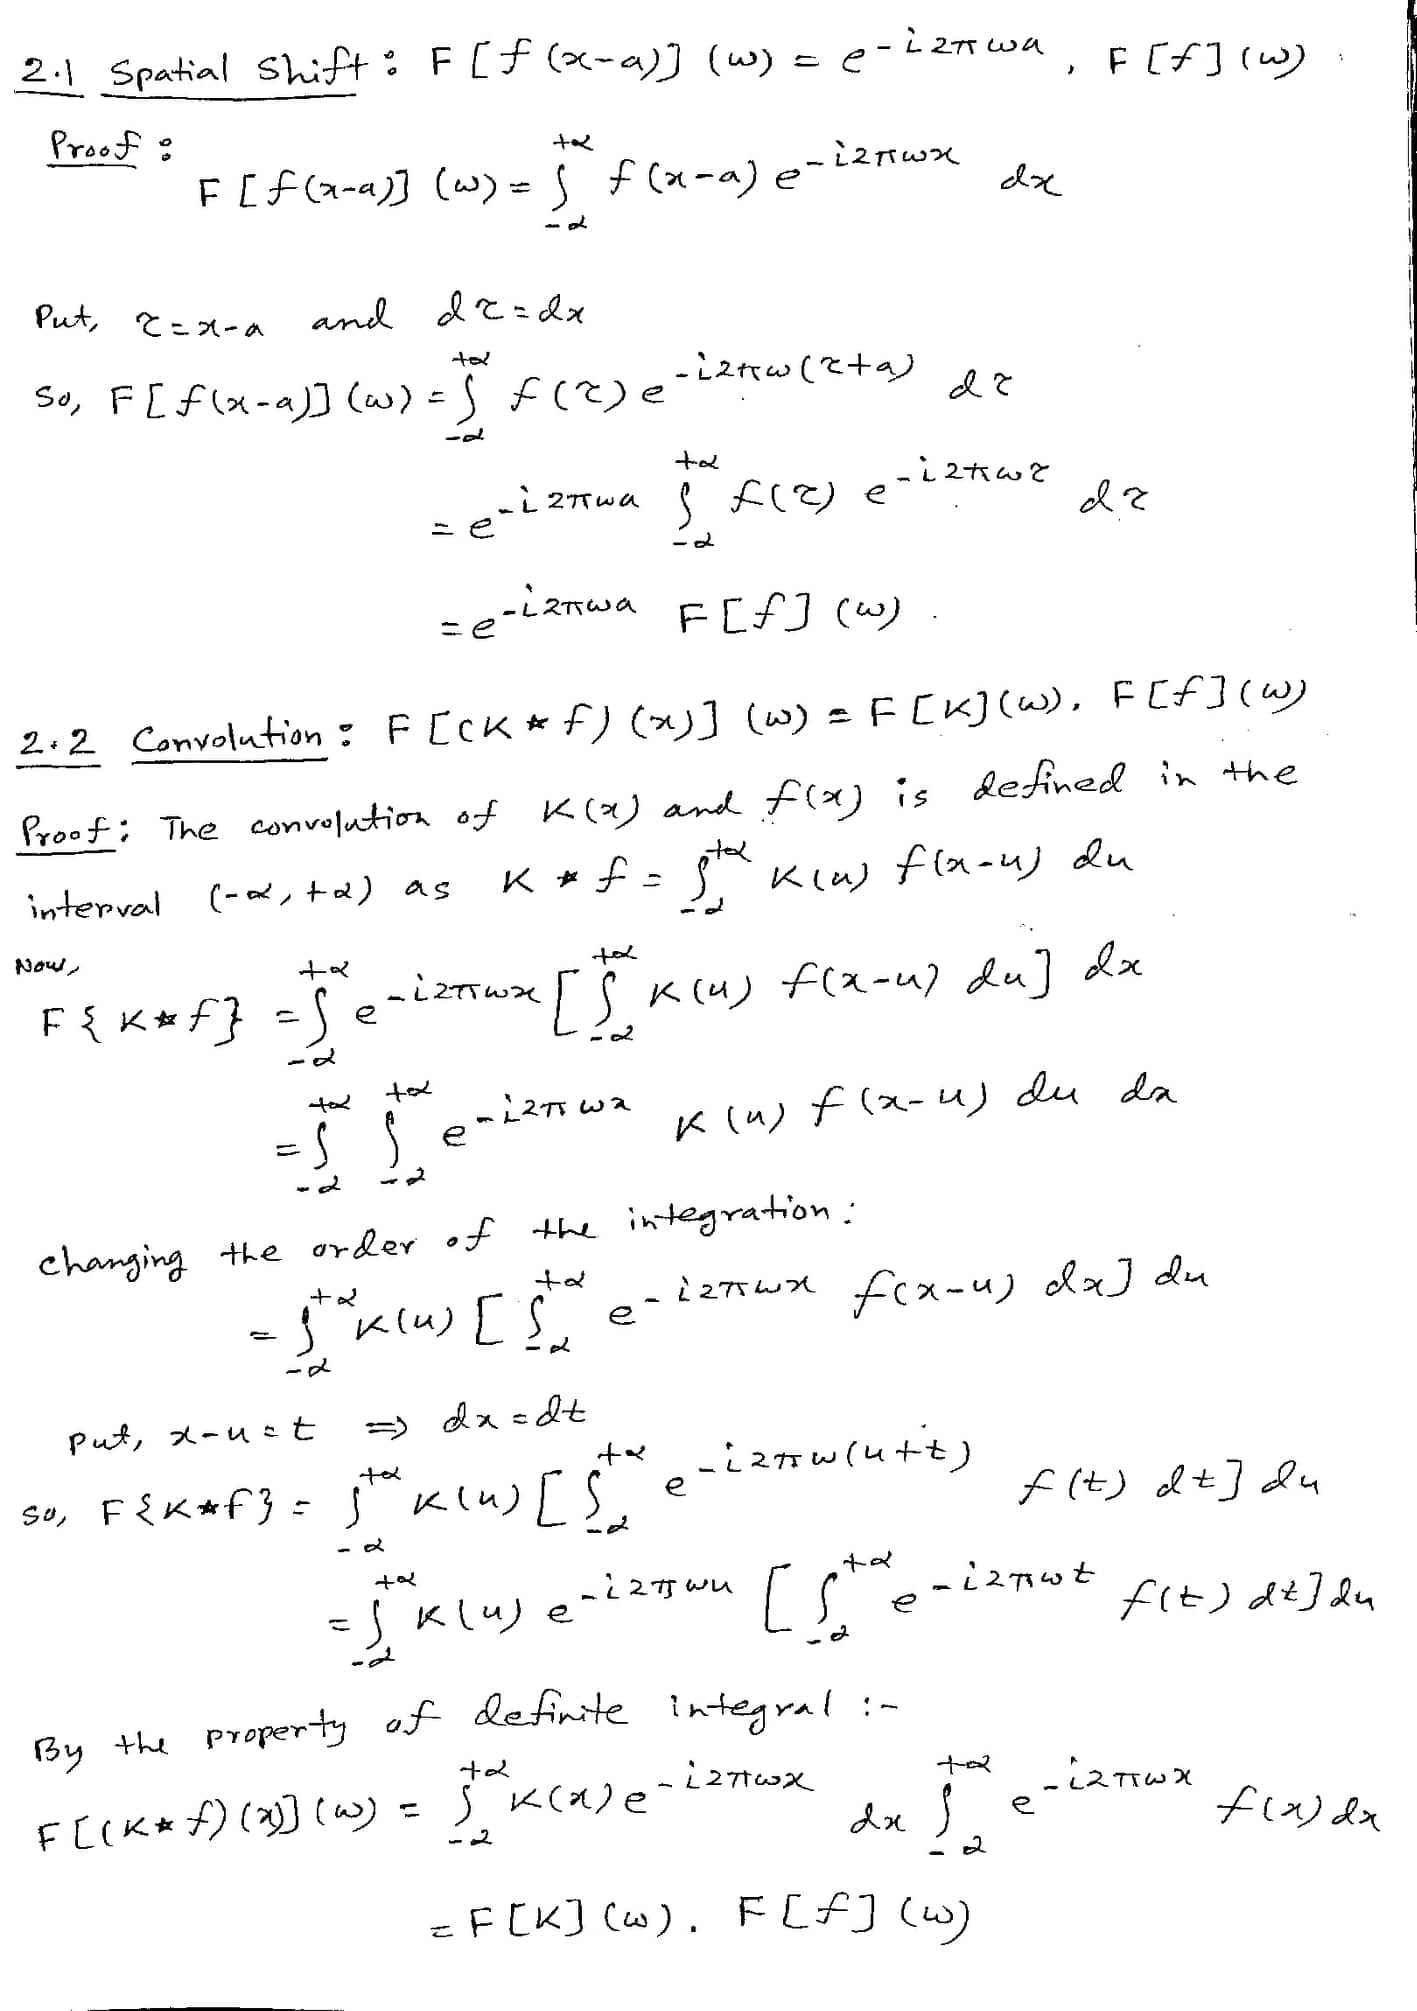 2.1 Spatial Shift : F [f (x-a)] (ω) = e^{-i2πωa} , F [f] (ω)
Proof :
F [f(x-a)] (ω) = ∫_{-α}^{+α} f (x-a) e^{-i2πωx} dx
Put, τ = x-a and dτ = dx
So, F [f(x-a)] (ω) = ∫_{-α}^{+α} f (τ) e^{-i2πω(τ+a)} dτ
= e^{-i2πωa} ∫_{-α}^{+α} f(τ) e^{-i2πωτ} dτ
= e^{-i2πωa} F [f] (ω) .
2.2 Convolution : F [(K * f) (x)] (ω) = F [K] (ω) . F [f] (ω)
Proof : The convolution of K(x) and f(x) is defined in the
interval (-α, +α) as K * f = ∫_{-α}^{+α} K(u) f(x-u) du
Now,
F { K * f } = ∫_{-α}^{+α} e^{-i2πωx} [ ∫_{-α}^{+α} K(u) f(x-u) du ] dx
= ∫_{-α}^{+α} ∫_{-α}^{+α} e^{-i2πωx} K (u) f (x-u) du dx
changing the order of the integration :
= ∫_{-α}^{+α} K(u) [ ∫_{-α}^{+α} e^{-i2πωx} f(x-u) dx ] du
put, x-u = t ⇒ dx = dt
so, F {K * f} = ∫_{-α}^{+α} K(u) [ ∫_{-α}^{+α} e^{-i2πω(u+t)} f (t) dt ] du
= ∫_{-α}^{+α} K(u) e^{-i2πωu} [ ∫_{-α}^{+α} e^{-i2πωt} f(t) dt ] du
By the property of definite integral :-
F [(K * f) (x)] (ω) = ∫_{-α}^{+α} K(x) e^{-i2πωx} dx ∫_{-α}^{+α} e^{-i2πωx} f(x) dx
= F [K] (ω) . F [f] (ω)